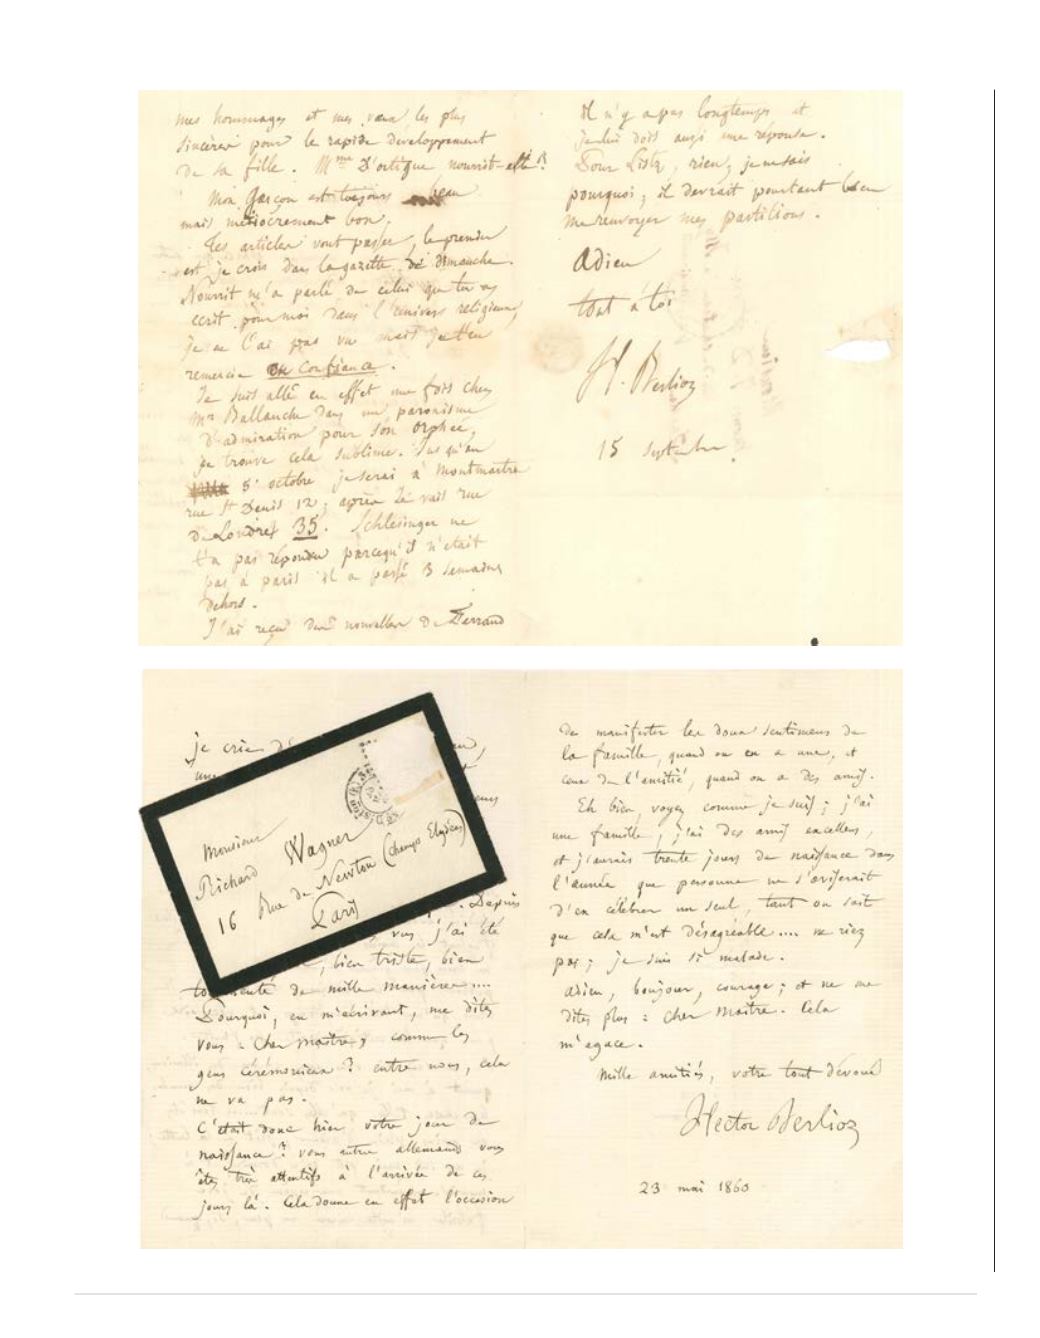 mes hommages et mes vœux les plus
sincères pour le rapide développement
de sa fille. Mme D'ortigue nourrit-elle?
Mon garçon est toujours beau
mais médiocrement bon.
Tes articles vont passer, le premier
est je crois dans la gazette de dimanche.
Nourrit m'a parlé de celui que tu as
écrit pour moi dans l'univers religieux,
je ne l'ai pas vu mais je t'en
remercie en confiance.
Je suis allé en effet une fois chez
Mr Ballanche dans un paroxisme
d'admiration pour son orphée,
je trouve cela sublime. Jusqu'au
5 octobre je serai à Montmartre
rue St Denis 12; après je vais rue
de Londres 35. Schlesinger ne
t'a pas répondu parcequ'il n'était
pas à paris il a passé 3 semaines
dehors.
J'ai reçu des nouvelles de Ferrand
Il n'y a pas longtemps et
je lui dois aussi une réponse.
Pour Listz, rien, je ne sais
pourquoi; il devrait pourtant bien
me renvoyer mes partitions.
Adieu
tout à toi
H. Berlioz
15 septembre.
je crie
Monsieur
Richard Wagner
16 Rue de Newton (champs Elysées)
Paris
Depuis
vous j'ai été
, bien triste, bien
tourmenté de mille manières....
Pourquoi, en m'écrivant, me dites
vous = cher maître, comme les
gens cérémonieux? entre nous, cela
ne va pas.
C'était donc hier votre jour de
naissance? vous autres allemands vous
êtes très attentifs à l'arrivée de ces
jours là. Cela donne en effet l'occasion
de manifester les doux sentimens de
la famille, quand on en a une, et
ceux de l'amitié, quand on a des amis.
Eh bien, voyez comme je suis; j'ai
une famille, j'ai des amis excellens,
et j'aurais trente jours de naissance dans
l'année que personne ne s'aviserait
d'en célébrer un seul, tant on sait
que cela m'est désagréable.... ne riez
pas; je suis si malade.
Adieu, bonjour, courage; et ne me
dites plus = cher maître. Cela
m'agace.
Mille amitiés, votre tout dévoué
Hector Berlioz
23 mai 1860